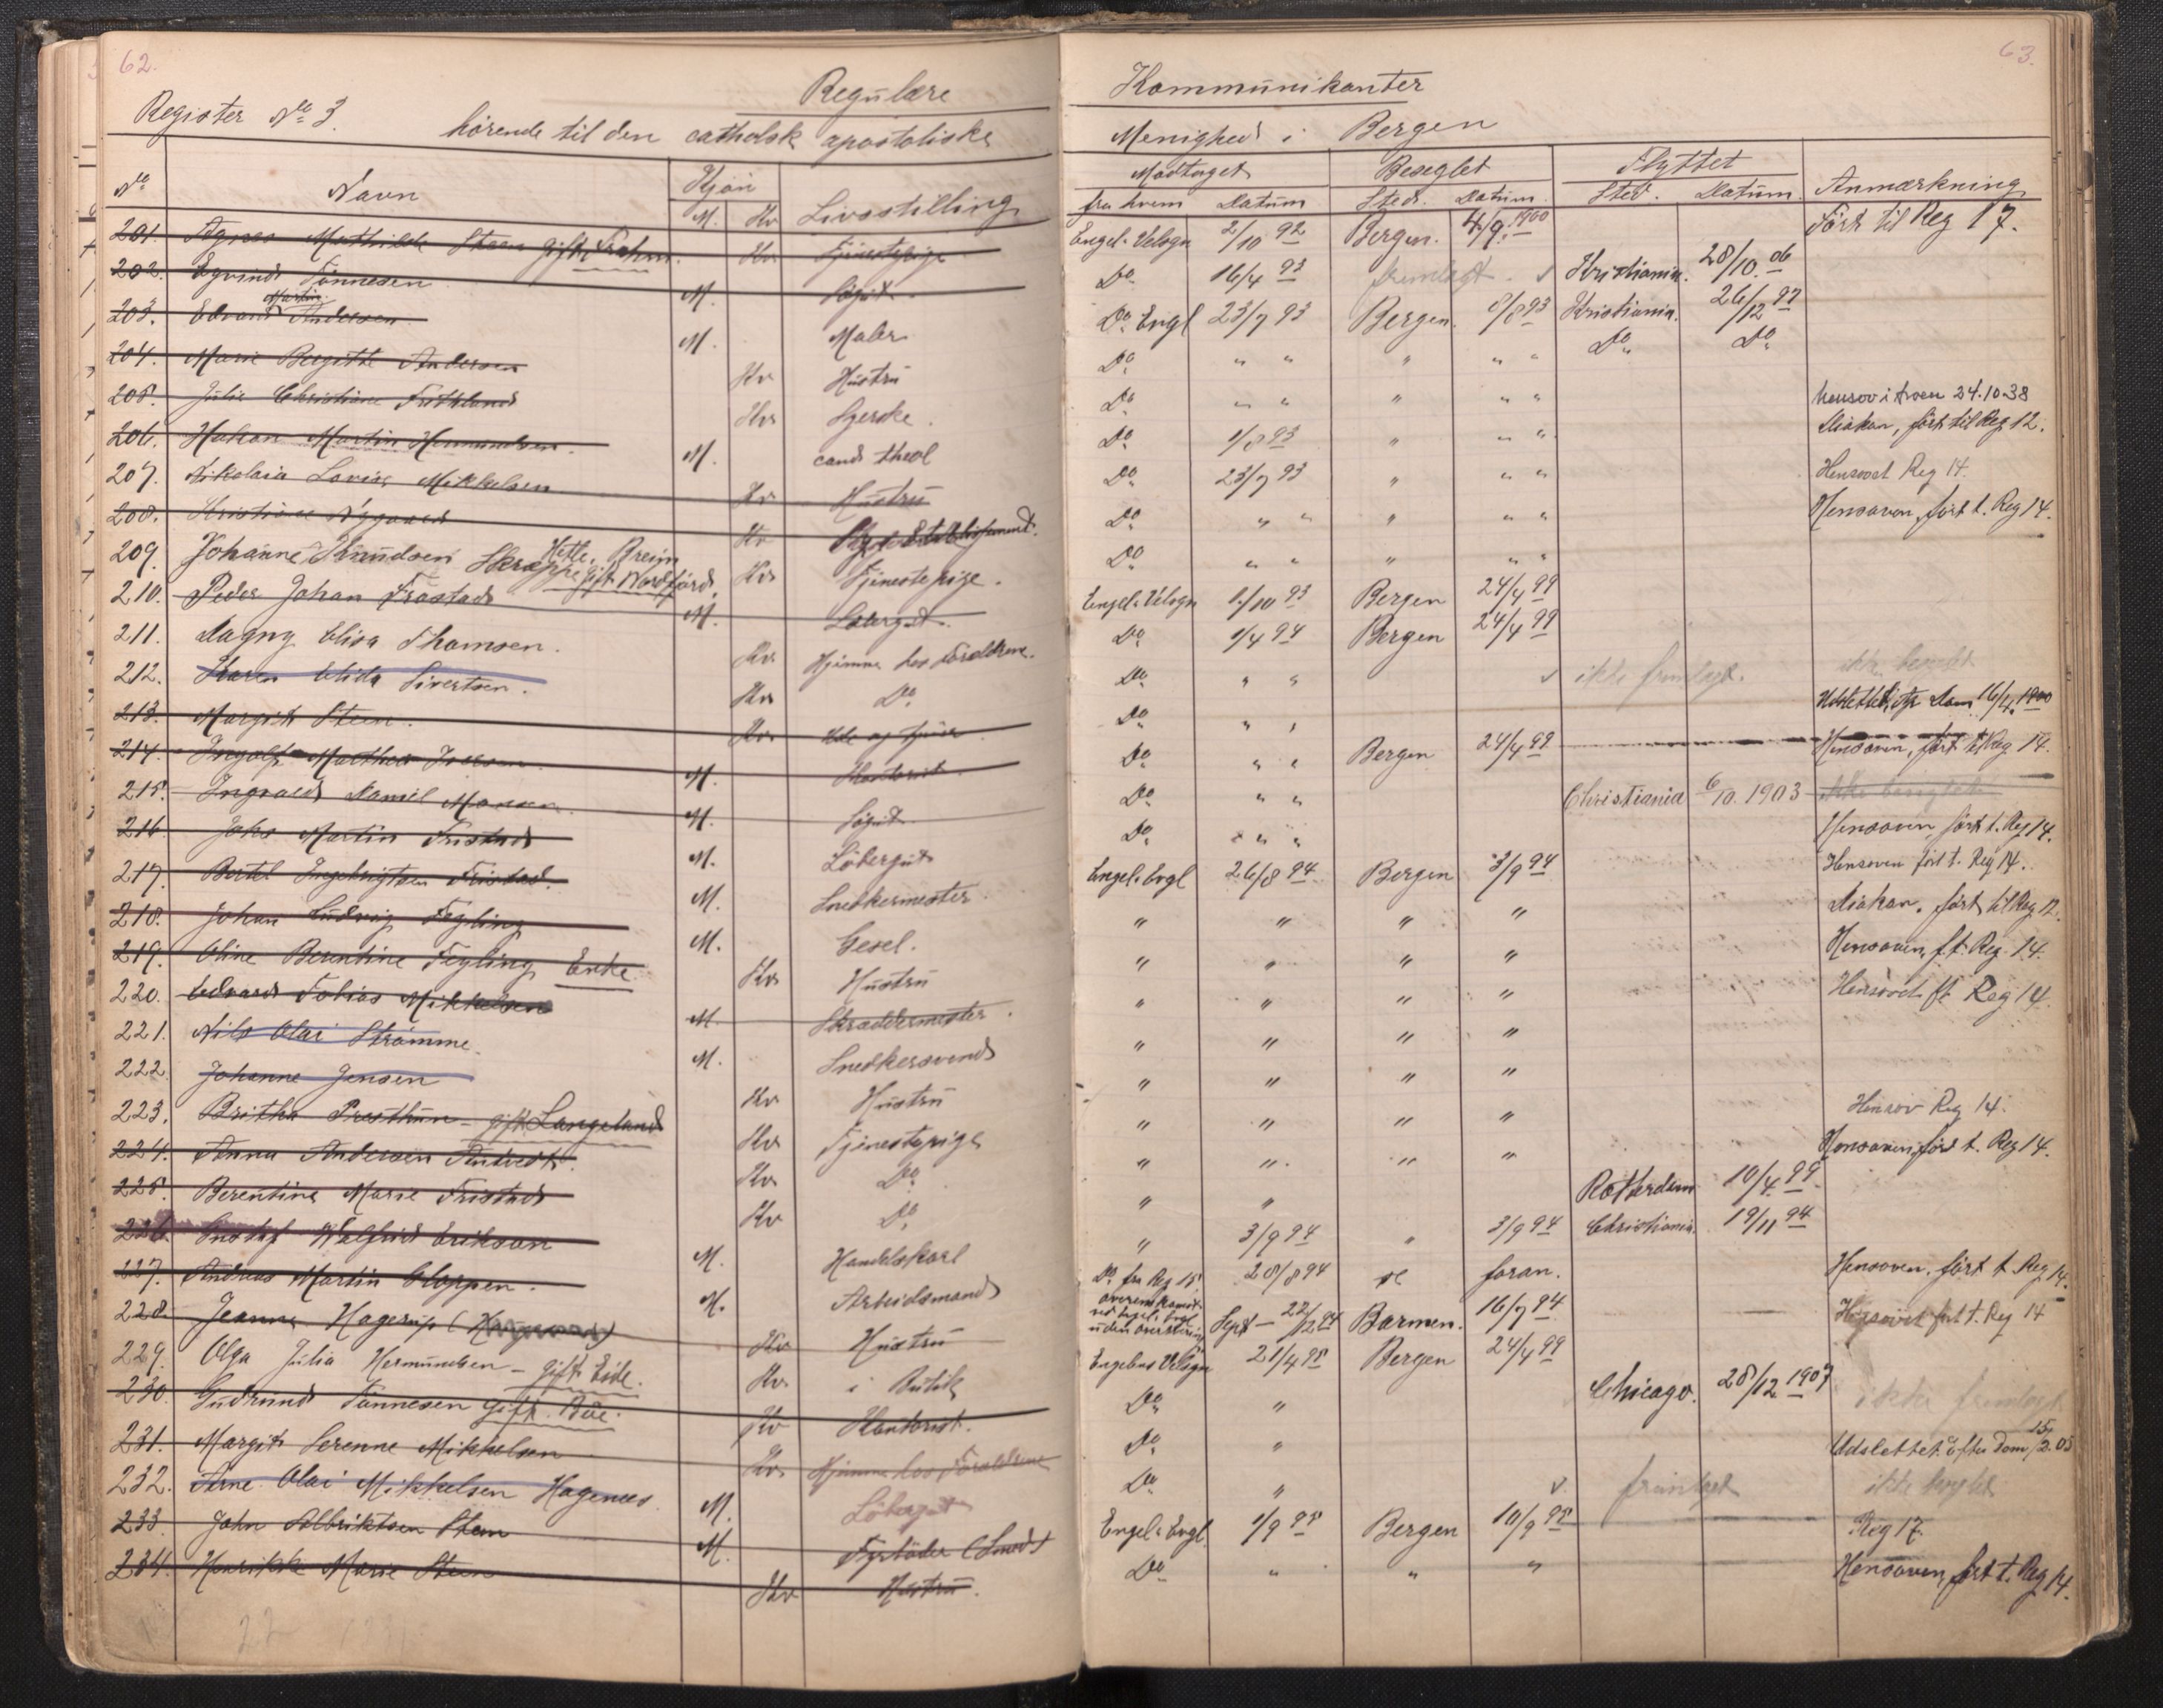 62.
Register No 3. Regulære
hörende til den catholsk apostoliske
No Navn Kjön Livsstilling
M. Kv
201. Agnes Mathilde Steen gift Frahm. Kv Tjenestepige
202. Eyvind Tönnesen M.
203. Edvard Martin Andersen M. Maler
204. Marie Bergitte Andersen Kv Hustru
205. Julie Christine Kv
206. Hakon Martin Hermundsen. M. cand theol
207. Nikolaia Lovise Mikkelsen Kv Hustru
208. Kristine Nygaard Kv
209. Johanne Knudsen Skrøppe Hetle, Breim gift Nordfjord. Kv Tjenestepige.
210. Peder Johan M.
211. Dagny Elisa Thomsen. Kv Hjemme hos Forældrene.
212. Karen Elida Sivertsen. Kv Do
213. Margit Steen. Kv
214. Ingolf Matheo M. Kontorist
215. Ingvald Daniel Monsen M.
216. Johs Martin Fristad M. Löbergut
217. Bertel Ingebrigtsen Fristad. M. Snedkermester.
218. Johan Ludvig Tegling M. Gesel.
219. Oline Berentine Tegling Enke Kv Hustru
220. Edvard Tobias Mikkelsen M. Skræddermester.
221. Nils Olai Strömme. M. Snedkersvend
222. Johanne Jensen Kv Hustru
223. Britha Presthun - gift Langeland Kv Tjenestepige
224. Anna Andersen Kv Do
225. Berentine Marie Fristad Kv Do
226. Gustaf Walfrid Erikson M. Handelskarl
227. Andreas Martin Gloppen. M. Arbeidsmand
228. Jeanna Hagerup Kv Hustru
229. Olga Julia Hermundsen - gift Eide. Kv i Butik
230. Gudrund Tönnesen gift Böe. Kv Kontorist.
231. Margit Serenne Mikkelsen Kv Hjemme hos Forældrene
232. Arne Olai Mikkelsen Hagenæs. M. Löbergut
233. John Albriktsen Steen M. Fyrböder (Smed)
234. Henrikke Marie Steen Kv Hustru.
63.
Kommunikanter
Menighed i Bergen
Modtaget Beseglet Flyttet Anmærkning
fra hvem Datum Sted. Datum. Sted. Datum.
Engel. Velsgn 2/10 92 Bergen. 4/9. 1900 Fört til Reg 17.
Do 16/4 93 fremlagt. Kristiania. 28/10. 06
Do Engl 23/7 93 Bergen. 8/8 93 Kristiania. 26/12 97
Do " " " " " Do Do
Do " " " " " hensov i troen 24.10.38
Do 1/8 93 " " " Diakon, fört til Reg 12.
Do 23/7 93 " " " Hensovet Reg 14.
Do " " " " " Hensoven, fört t. Reg 14.
Do " " " "
Engel. Velsgn 1/10 93 Bergen 24/4 99
Do 1/4 94 Bergen 24/4 99
Do " " ikke fremlagt. ikke beseglet
Do " " Udslettet, efter Dom 16/4. 1900
Do " " Bergen 24/4 99 Hensoven, fört t. Reg 14.
Do " " Christiania 6/10. 1903 ikke beseglet
Do " " " Hensoven, fört t. Reg 14.
Engel. Evgl 26/8 94 Bergen 3/9 94 Hensoven fört t. Reg 14.
" " " " Diakon, fört til Reg 12.
" " " " Hensoven, f.t. Reg. 14.
" " " " Hensovet ft Reg 14.
" " " "
" " " "
" " " " Hensov Reg 14.
" " " " Hensoven, fört t. Reg 14.
" " Rotterdam 10/4. 99
" 3/9 94 " 3/9 94 Christiania. 19/11 94
Do fra Reg 15 28/8 94 se foran. Hensoven, fört t. Reg 14.
uden Sept - 22/12 94 Barmen. 16/7 94 Hensovet fört t. Reg 14
Engelens Velsgn 21/4 95 Bergen 24/4 99
Do " Chicago. 28/12 1907 ikke fremlagt
Do " Udslettet efter Dom 15/2. 05
Do " fremlagt ikke beseglet
Engel. Evgl. 1/9 95 Bergen 10/9 95 Reg 17.
Do " " " Hensoven, fört t. Reg 14.